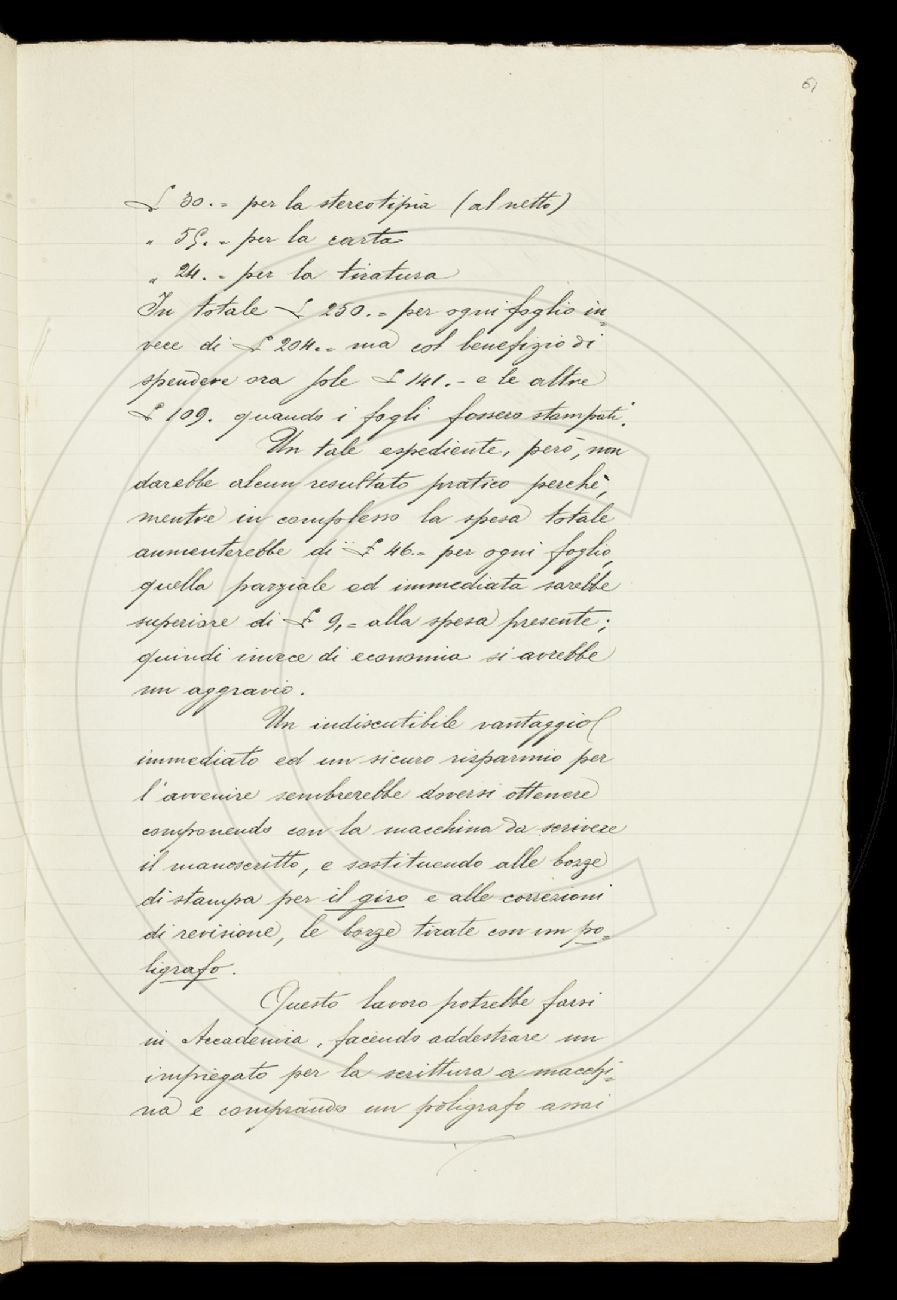 61
£ 30.= per la stereotipia (al netto)
" 55.= per la carta
" 24.= per la tiratura
In totale £ 250.= per ogni foglio in=
vece di £ 204.= ma col benefizio di
spendere ora sole £ 141.- e le altre
£ 109. quando i fogli fossero stampati.
Un tale espediente, però, non
darebbe alcun resultato pratico perchè,
mentre in complesso la spesa totale
aumenterebbe di £ 46.= per ogni foglio,
quella parziale ed immediata sarebbe
superiore di £ 9,= alla spesa presente;
quindi invece di economia si avrebbe
un aggravio.
Un indiscutibile vantaggio
immediato ed un sicuro risparmio per
l'avvenire sembrerebbe doversi ottenere
componendo con la macchina da scrivere
il manoscritto, e sostituendo alle bozze
di stampa per il giro e alle correzioni
di revisione, le bozze tirate con un po=
ligrafo.
Questo lavoro potrebbe farsi
in Accademia, facendo addestrare un
impiegato per la scrittura a macchi=
na e comprando un poligrafo assai